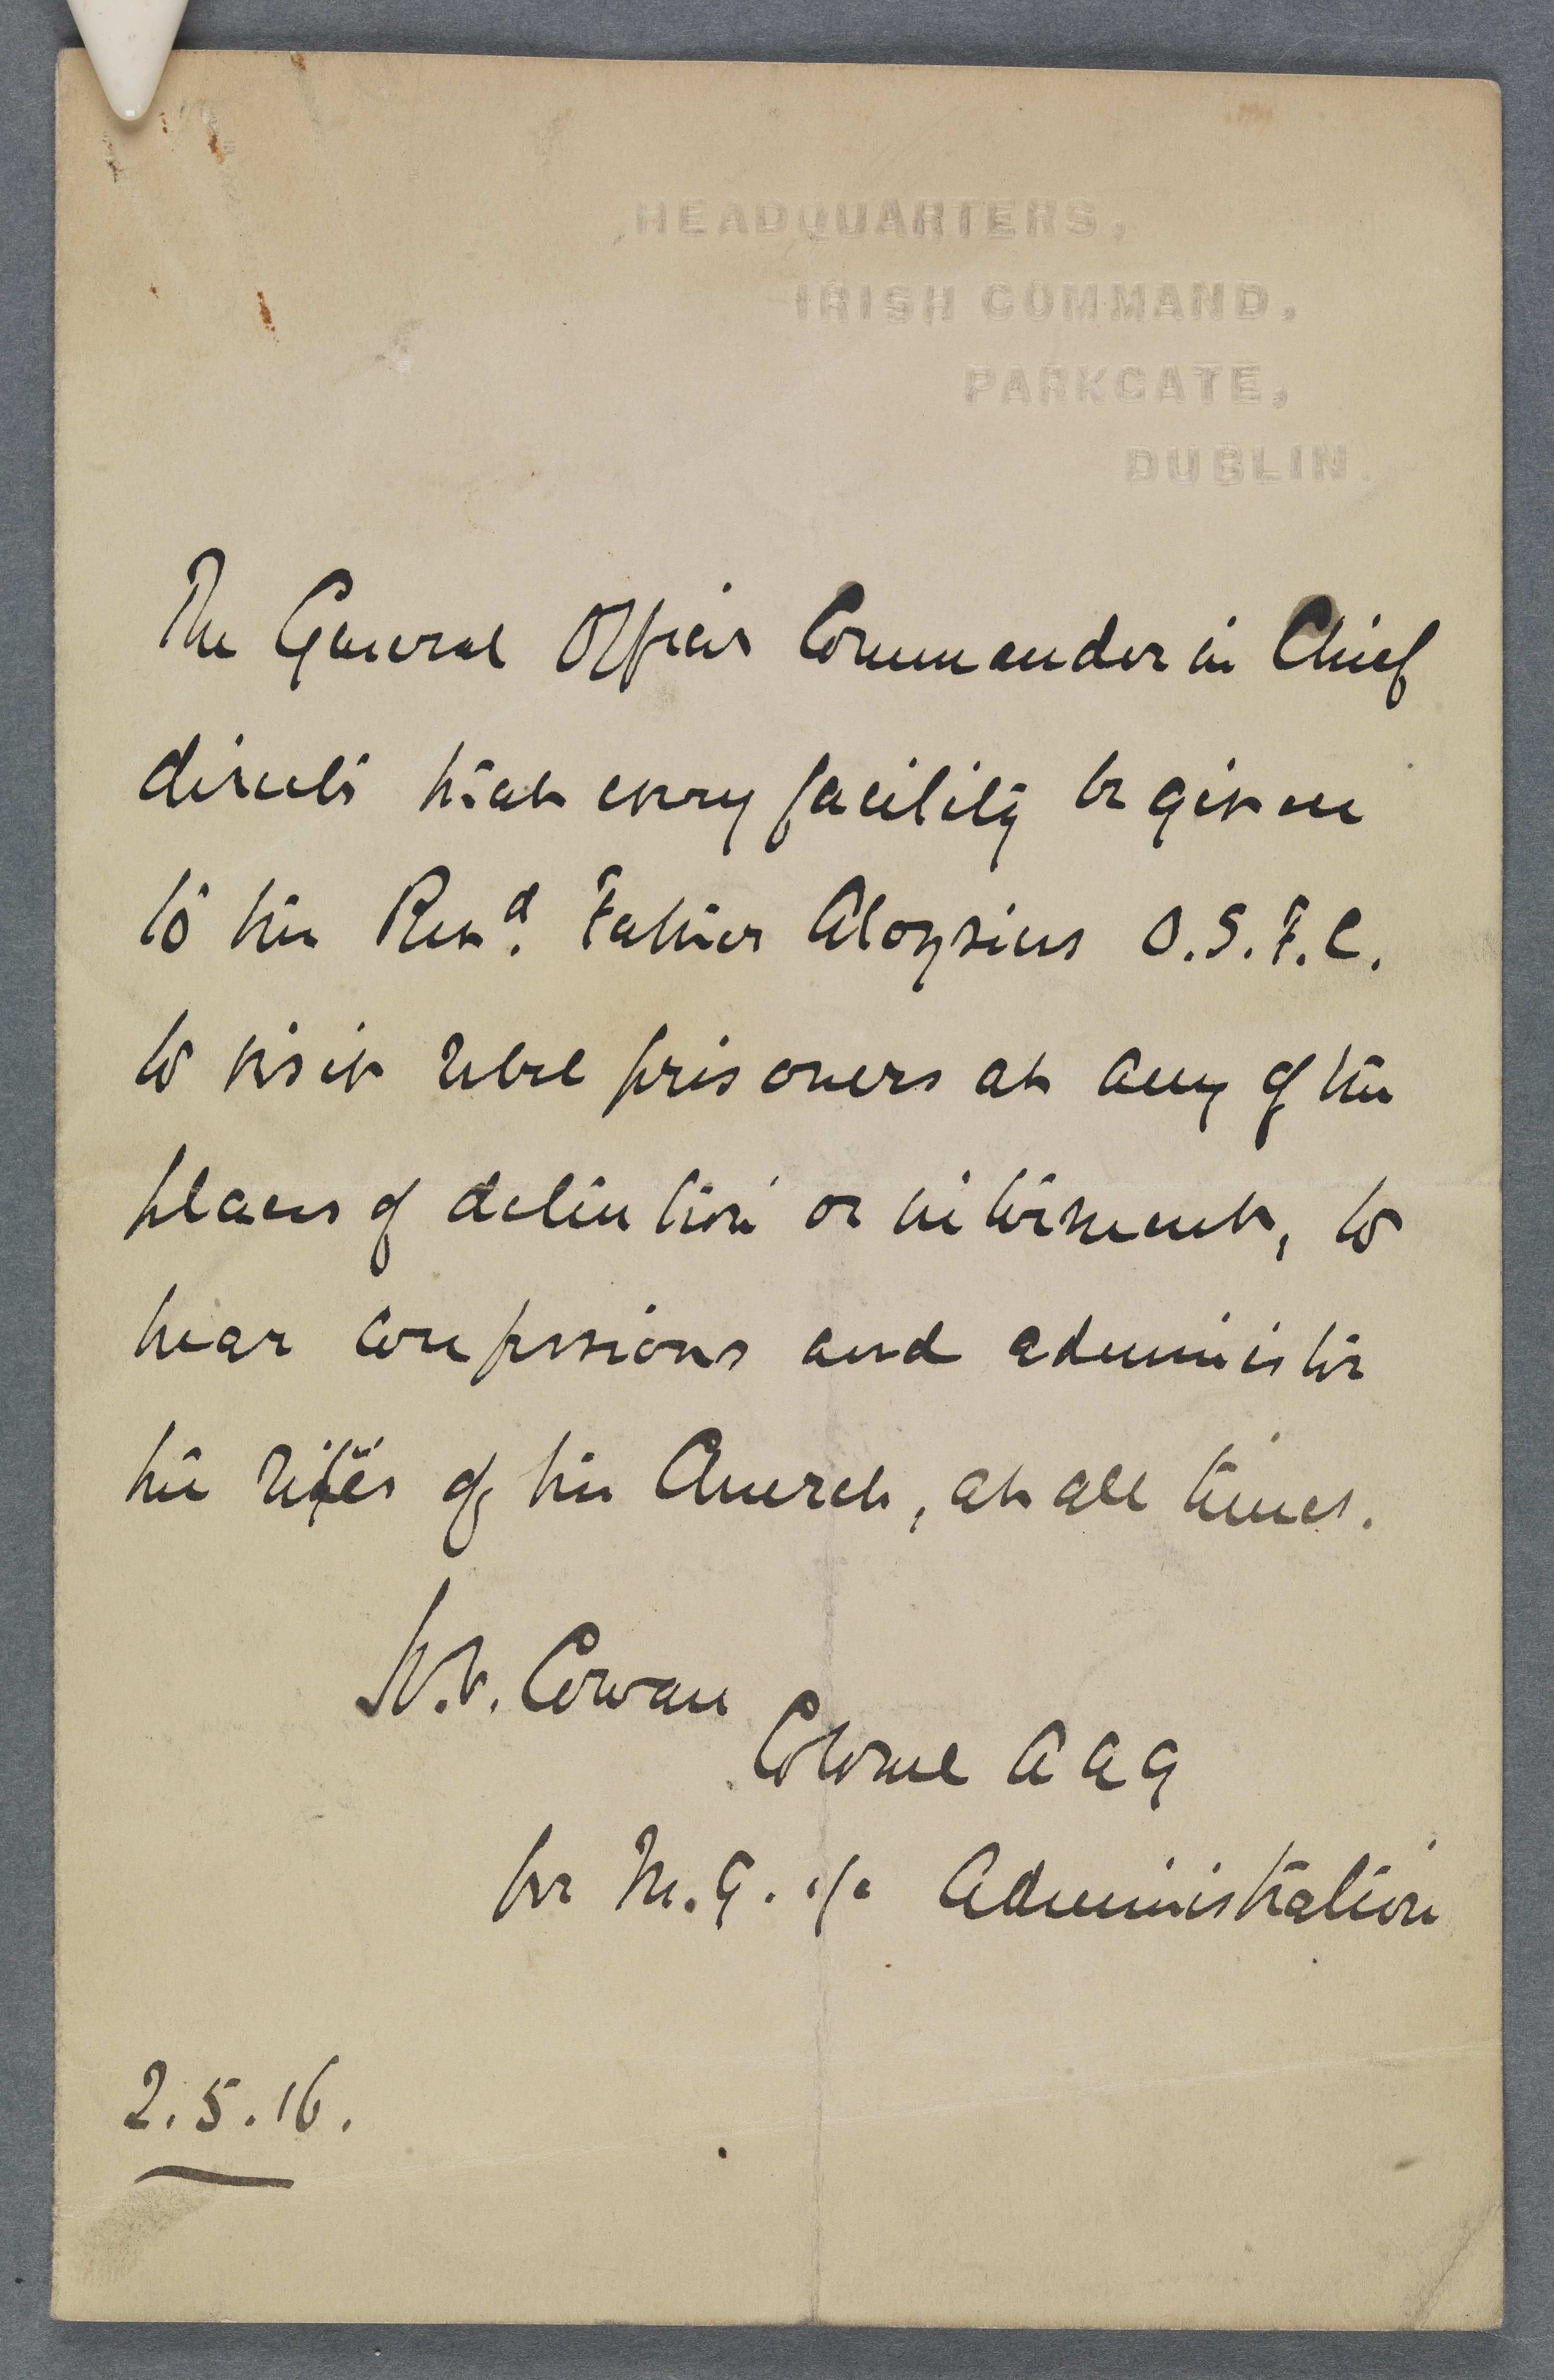 HEADQUARTERS,
IRISH COMMAND,
PARKGATE,
DUBLIN.
The General Officer Commander in Chief
directs that every facility be given
to the Revd. Father Aloysius O.S.F.C.
to visit rebel prisoners at any of the
places of detention or internment, to
hear confessions and administer
the rites of the Church, at all times.
H.V. Cowan
Colonel A A G
for M.G. i/c Administration
2.5.16.